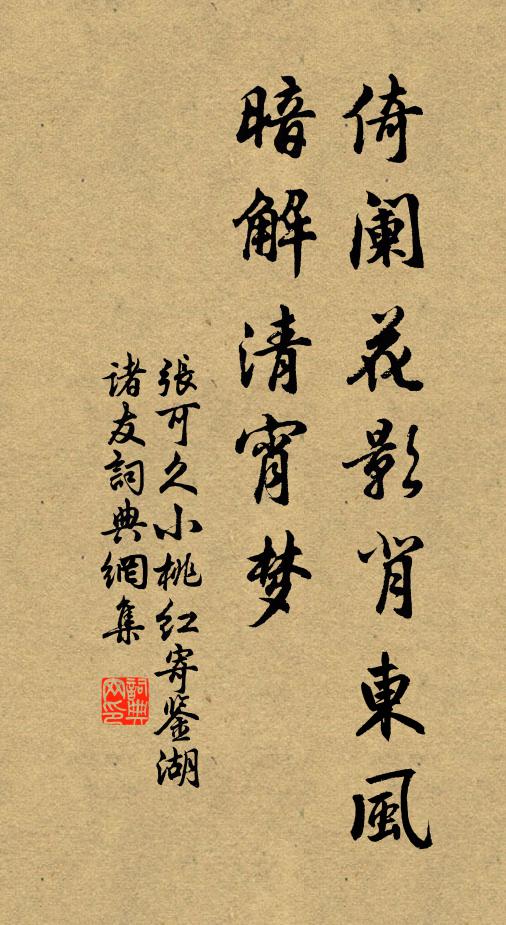 倚阑花影背東風
暗解清宵梦
張可久小桃红寄鉴湖
诸友詞典網集
詞典
网印